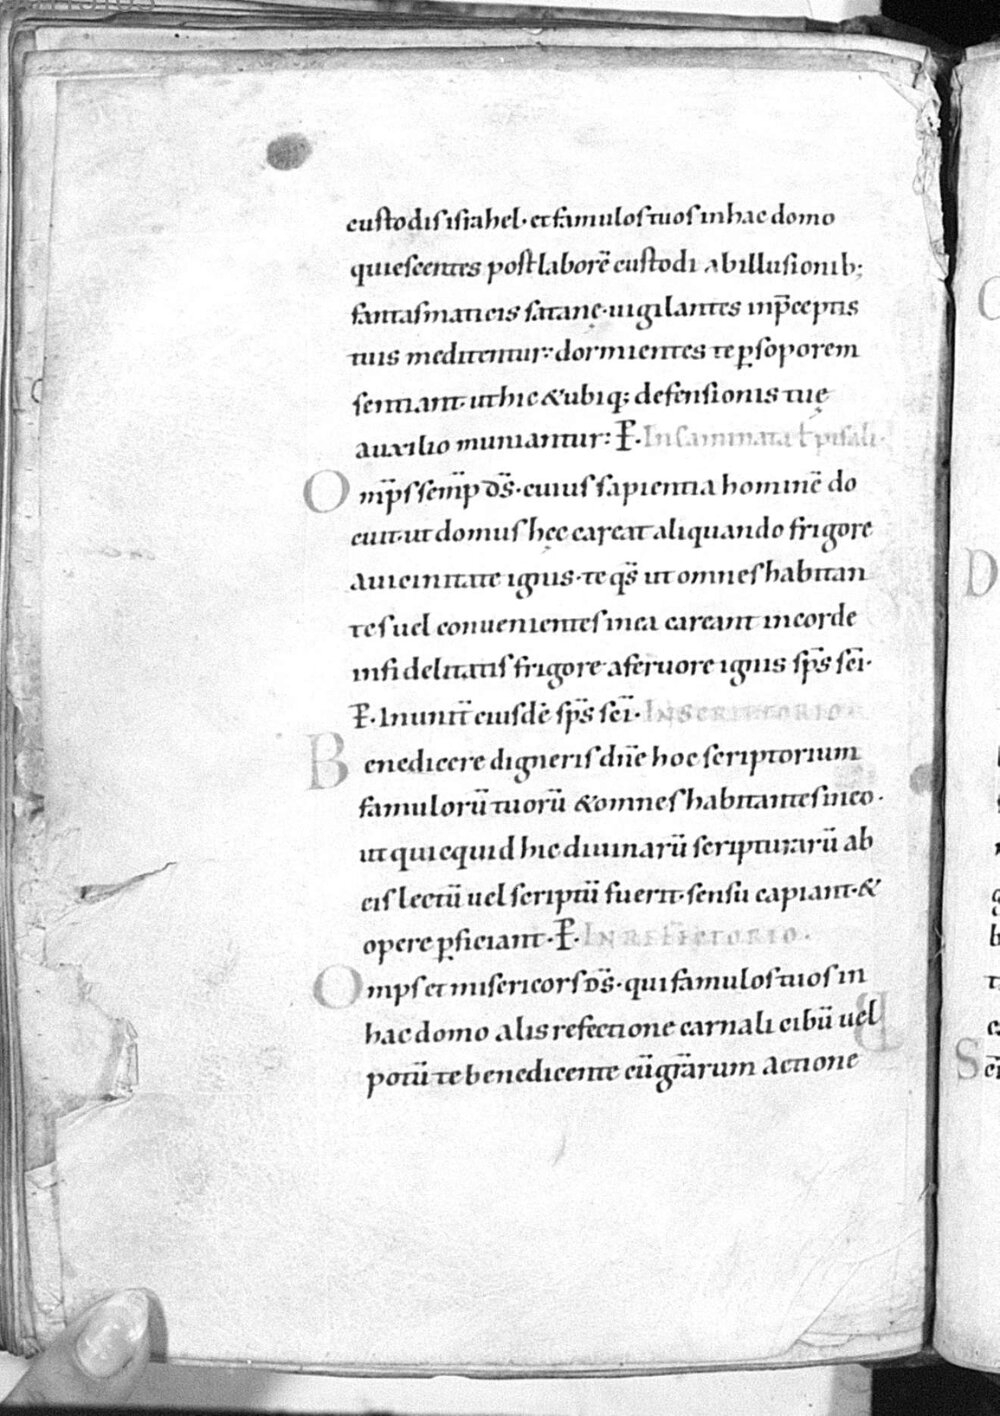 custodis israhel· et famulos tuos in hac domo
quiescentes post laborē custodi ab illusionib;
fantasmaticis satanę· uigilantes in p̄ceptis
tuis meditentur: dormientes te ꝑ soporem
sentiant· ut hic & ubiq; defensionis tuę
auxilio muniantur: P̵· In caminata
Om̄ps semp̄ dš· cuius sapientia hominē do
cuit· ut domus hęc careat aliquando frigore
a uicinitate ignis· te qš ut omnes habitan
tes uel conuenientes in ea careant in corde
infidelitatis frigore a feruore ignis sp̄s sc̄i·
P̵· In unit̄ eiusdē sp̄s sc̄i· In scriptorio·
Benedicere digneris dn̄e hoc scriptorium
famulorū tuorū & omnes habitantes in eo·
ut quicquid hic diuinarū scripturarū ab
eis lectū uel scriptū fuerit· sensu capiant· &
opere ꝑficiant· P̵· In refectorio·
Omps et misericors dš· qui famulos tuos in
hac domo alis refectione carnali cibū uel
potū te benedicente cū gr̄arum actione